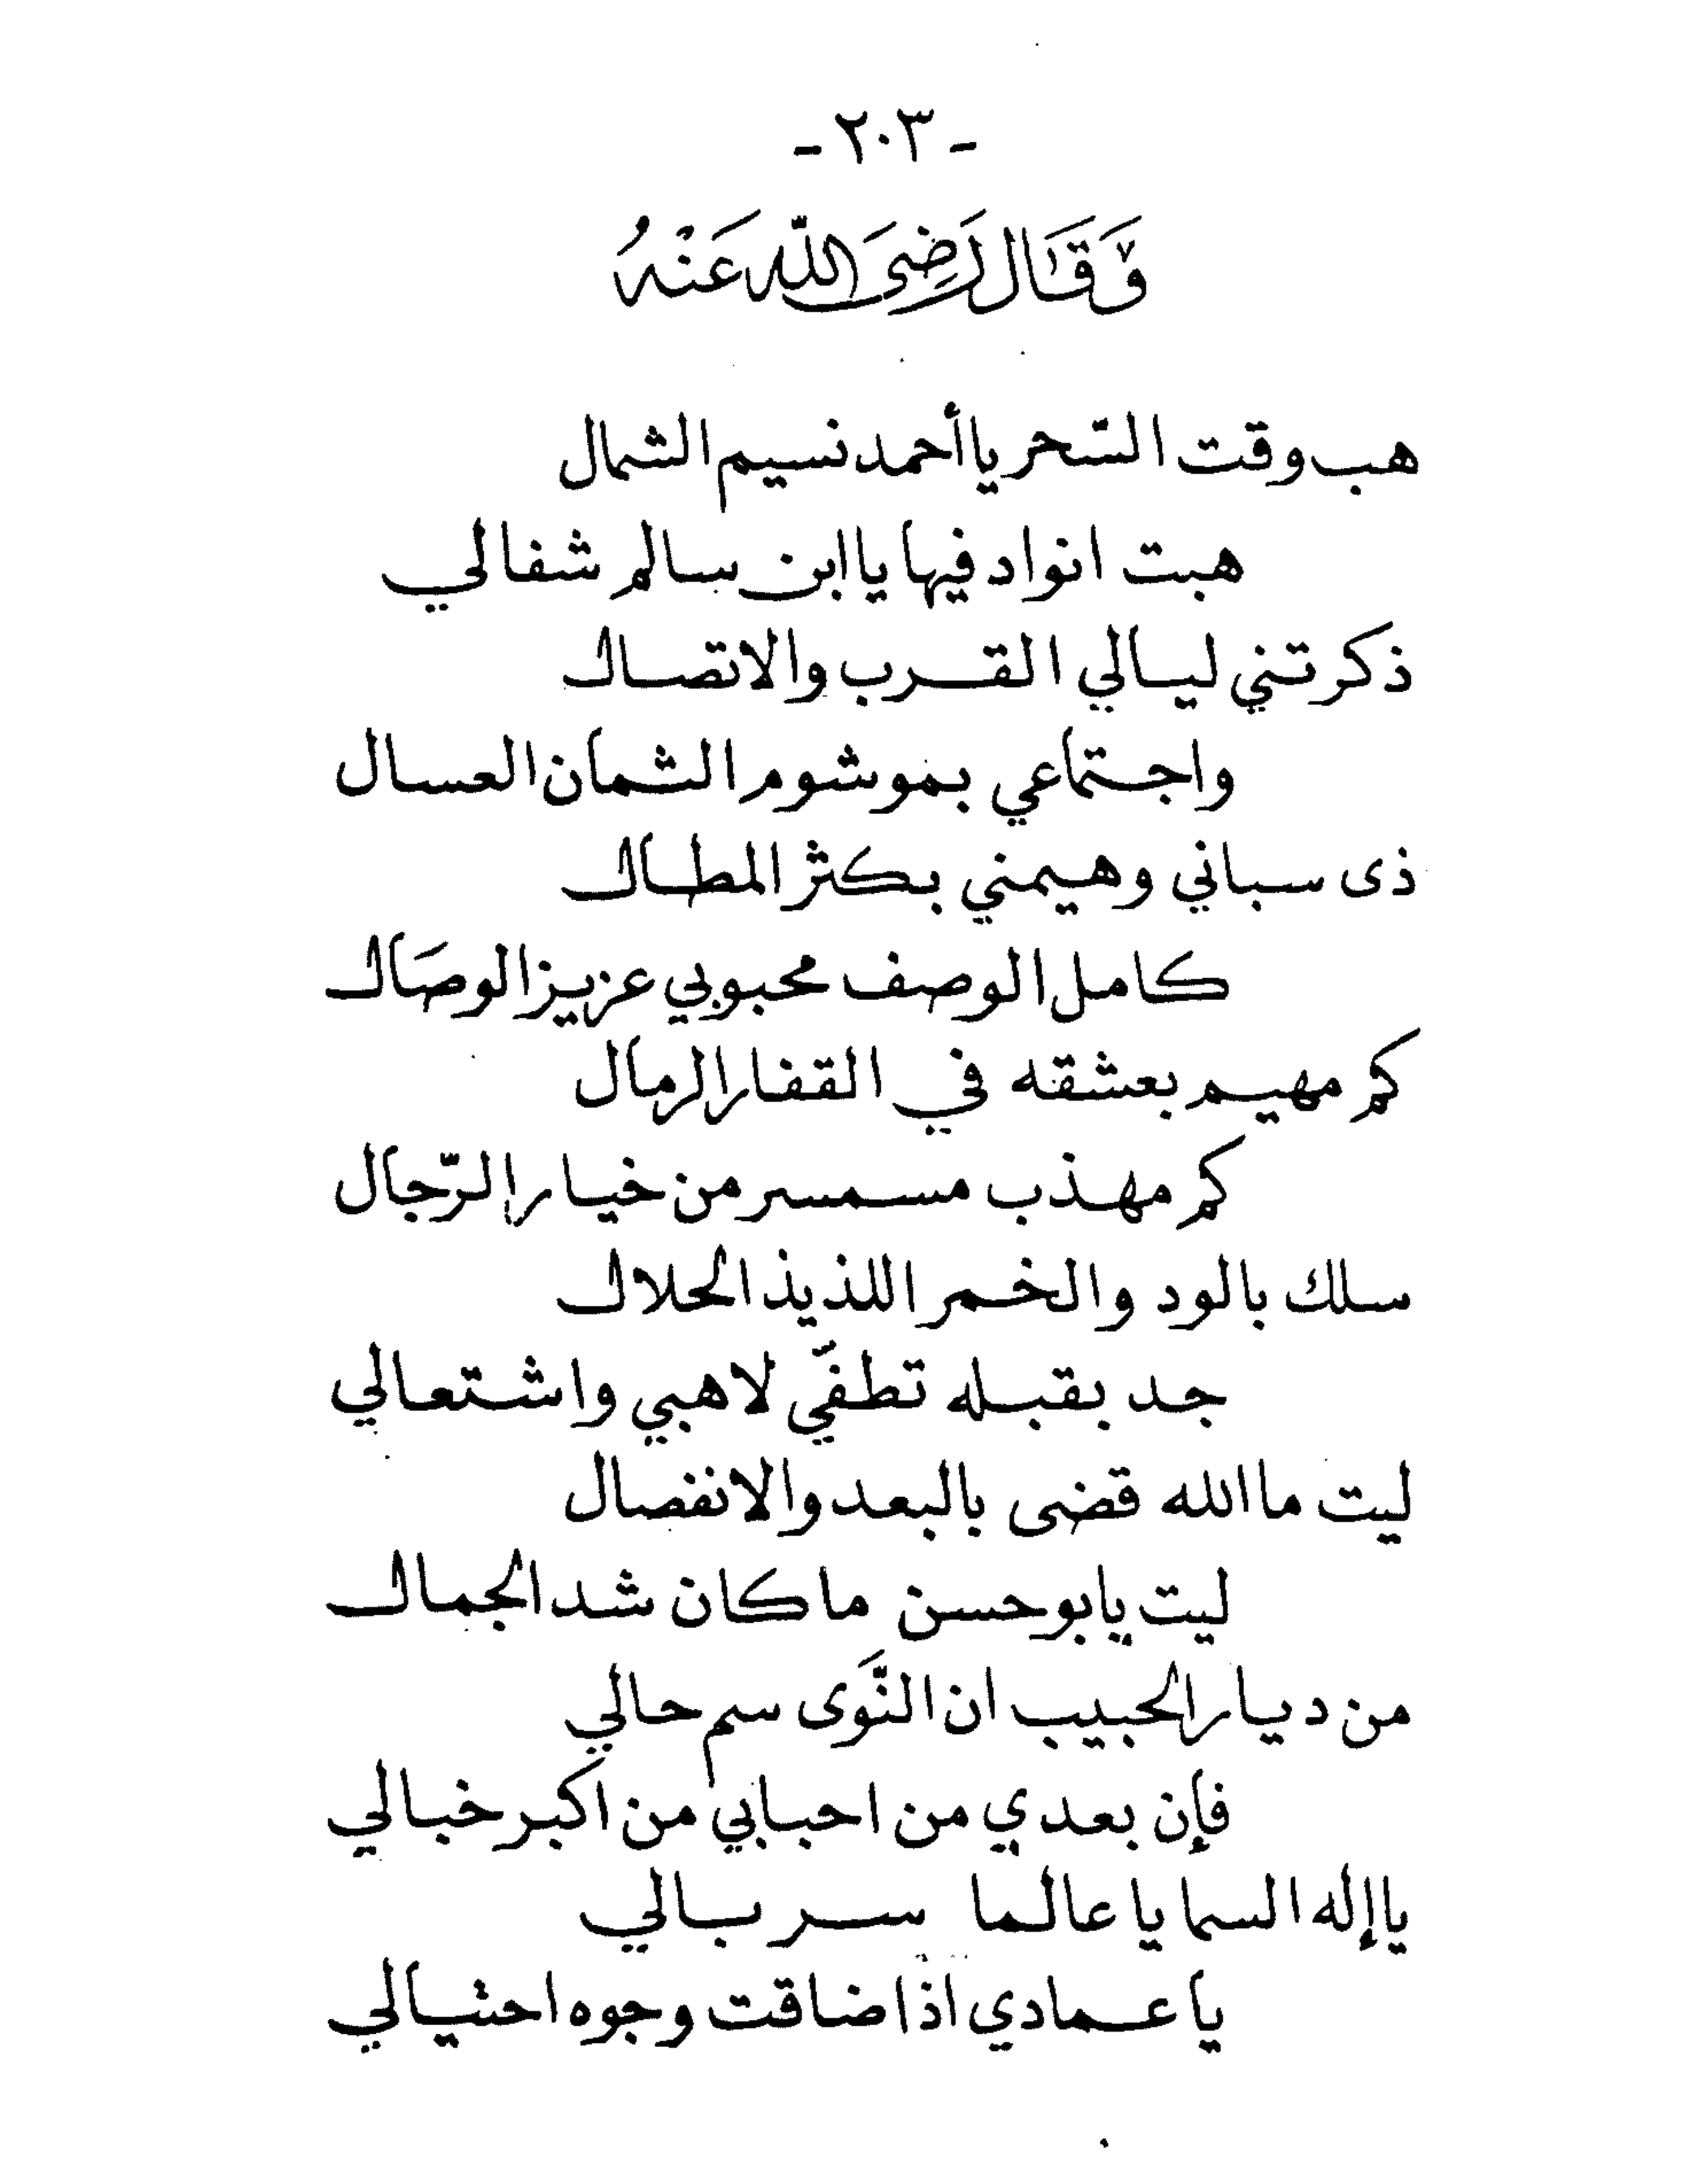 - ٢٠٣ -
وَقَال رَضِىَ اللّٰه عَنْهُ
هب وقت السّحر يا أحمد نسيم الشمال
هبت انواد فيها يا ابن سالم شفالي
ذكرتني ليالي القرب والاتصال
واجتماعي بموشوم الثمان العسال
ذى سباني وهيمني بكثر المطال
كامل الوصف محبوبي عزيز الوصَال
كم مهيم بعشقه في القفار الرمال
كم مهذب مسمسر من خيار الرّجال
سلك بالود والخمر اللذيذ الحلال
جد بقبله تطفّي لاهبي واشتعالي
ليت ما الله قضى بالبعد والانفصال
ليت يابو حسن ما كان شد الجمال
من ديار الحبيب ان النَّوَى سم حالي
فإن بعدي من احبابي من اكبر خبالي
يا إله السما يا عالما سر بالي
يا عمادي اذا ضاقت وجوه احتيالي